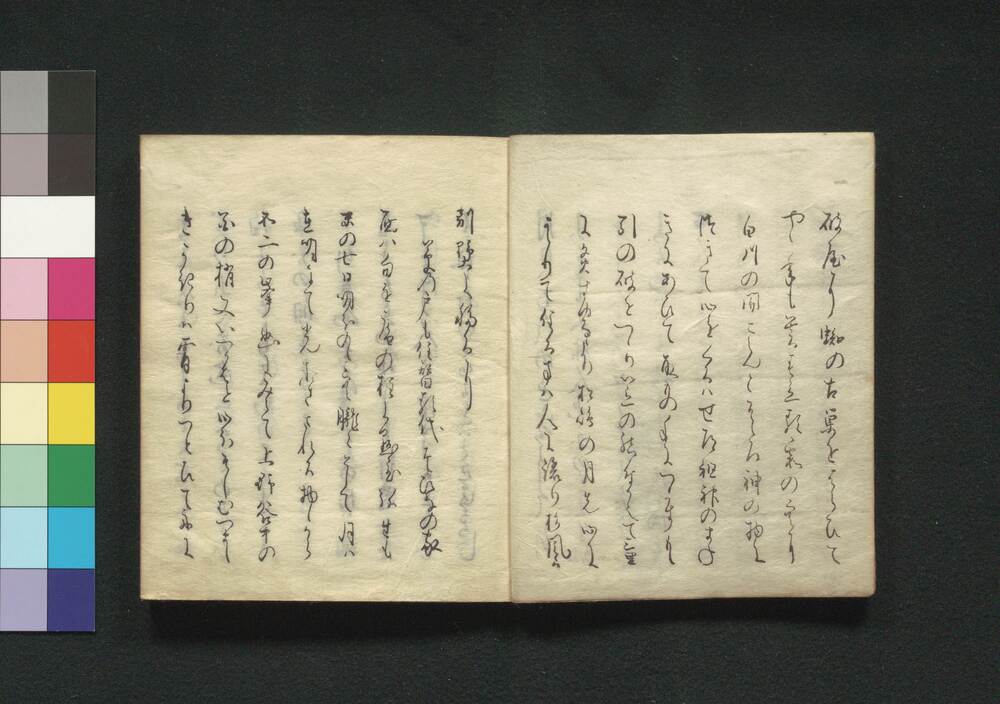 破屋に蜘の古巣をはらひて
やゝ年も暮春立る霞の空に
白川の関こえんとそゝろ神の物に
つきて心をくるはせ道祖神のまね
きにあひて取もの手につかすもゝ
引の破をつゝり笠の緒付かえて三里
に灸すゆるより松嶋の月先心に
かゝりて住る方は人に譲り杉風か
別墅に移るに
草の戸も住替る代そひなの家
面八句を庵の柱に懸置弥生も
末の廿日明ほのゝ空朧々として月は
在明にて光おさまれる物から
不二の峯幽にみえて上野谷中の
花の梢又いつかはと心ほそしむつまし
きかきりは宵よりつとひて舟に